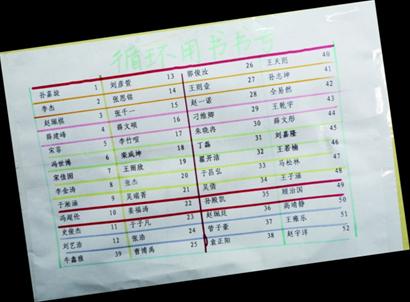 循环用书书号
孙嘉璇 1 刘彦萱 13 郭俊汝 26 王天阳 40
李杰 2 张思铭 14 王则壹 27 孙志坤 41
赵珮祺 3 张千一 15 赵一诺 28 仝易然 42
薛建峰 4 薛文硕 16 刁维卿 29 王乾宇 43
宋蓉 5 李竹喧 17 朱晓冉 30 薛文彤 44
冯世博 6 栾斌坤 18 丁磊 31 刘嘉隆 45
宋佳国 7 王雨欣 19 翟开洁 32 王若楠 46
李金涛 8 张杰 20 于昌弘 33 马松林 47
于湘涵 9 吴瑞菁 21 吴倩 34 王子涵 48
冯赵伦 10 姜福涛 22 孙殿凯 35 顾治国 49
史俊杰 11 于子凡 23 赵珮廷 36 高靖静 50
刘艺浩 12 张浩 24 管子豪 37 王雍乐 51
牛鑫雅 39 曹博禹 25 袁正阳 38 赵宇洋 52